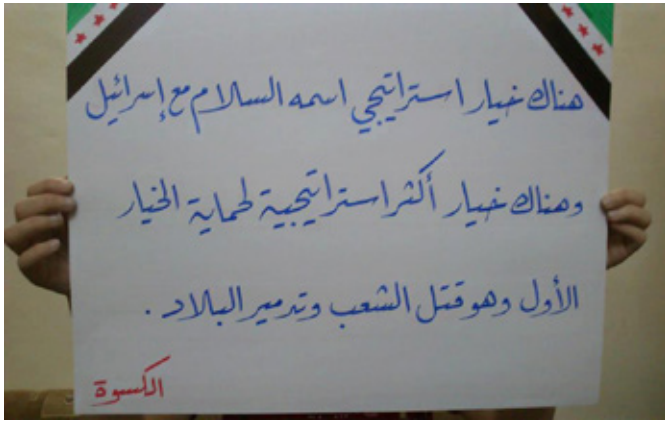 هناك خيار استراتيجي اسمه السلام مع إسرائيل
وهناك خيار أكثر استراتيجية لحماية الخيار
الأول وهو قتل الشعب وتدمير البلاد .
الكسوة